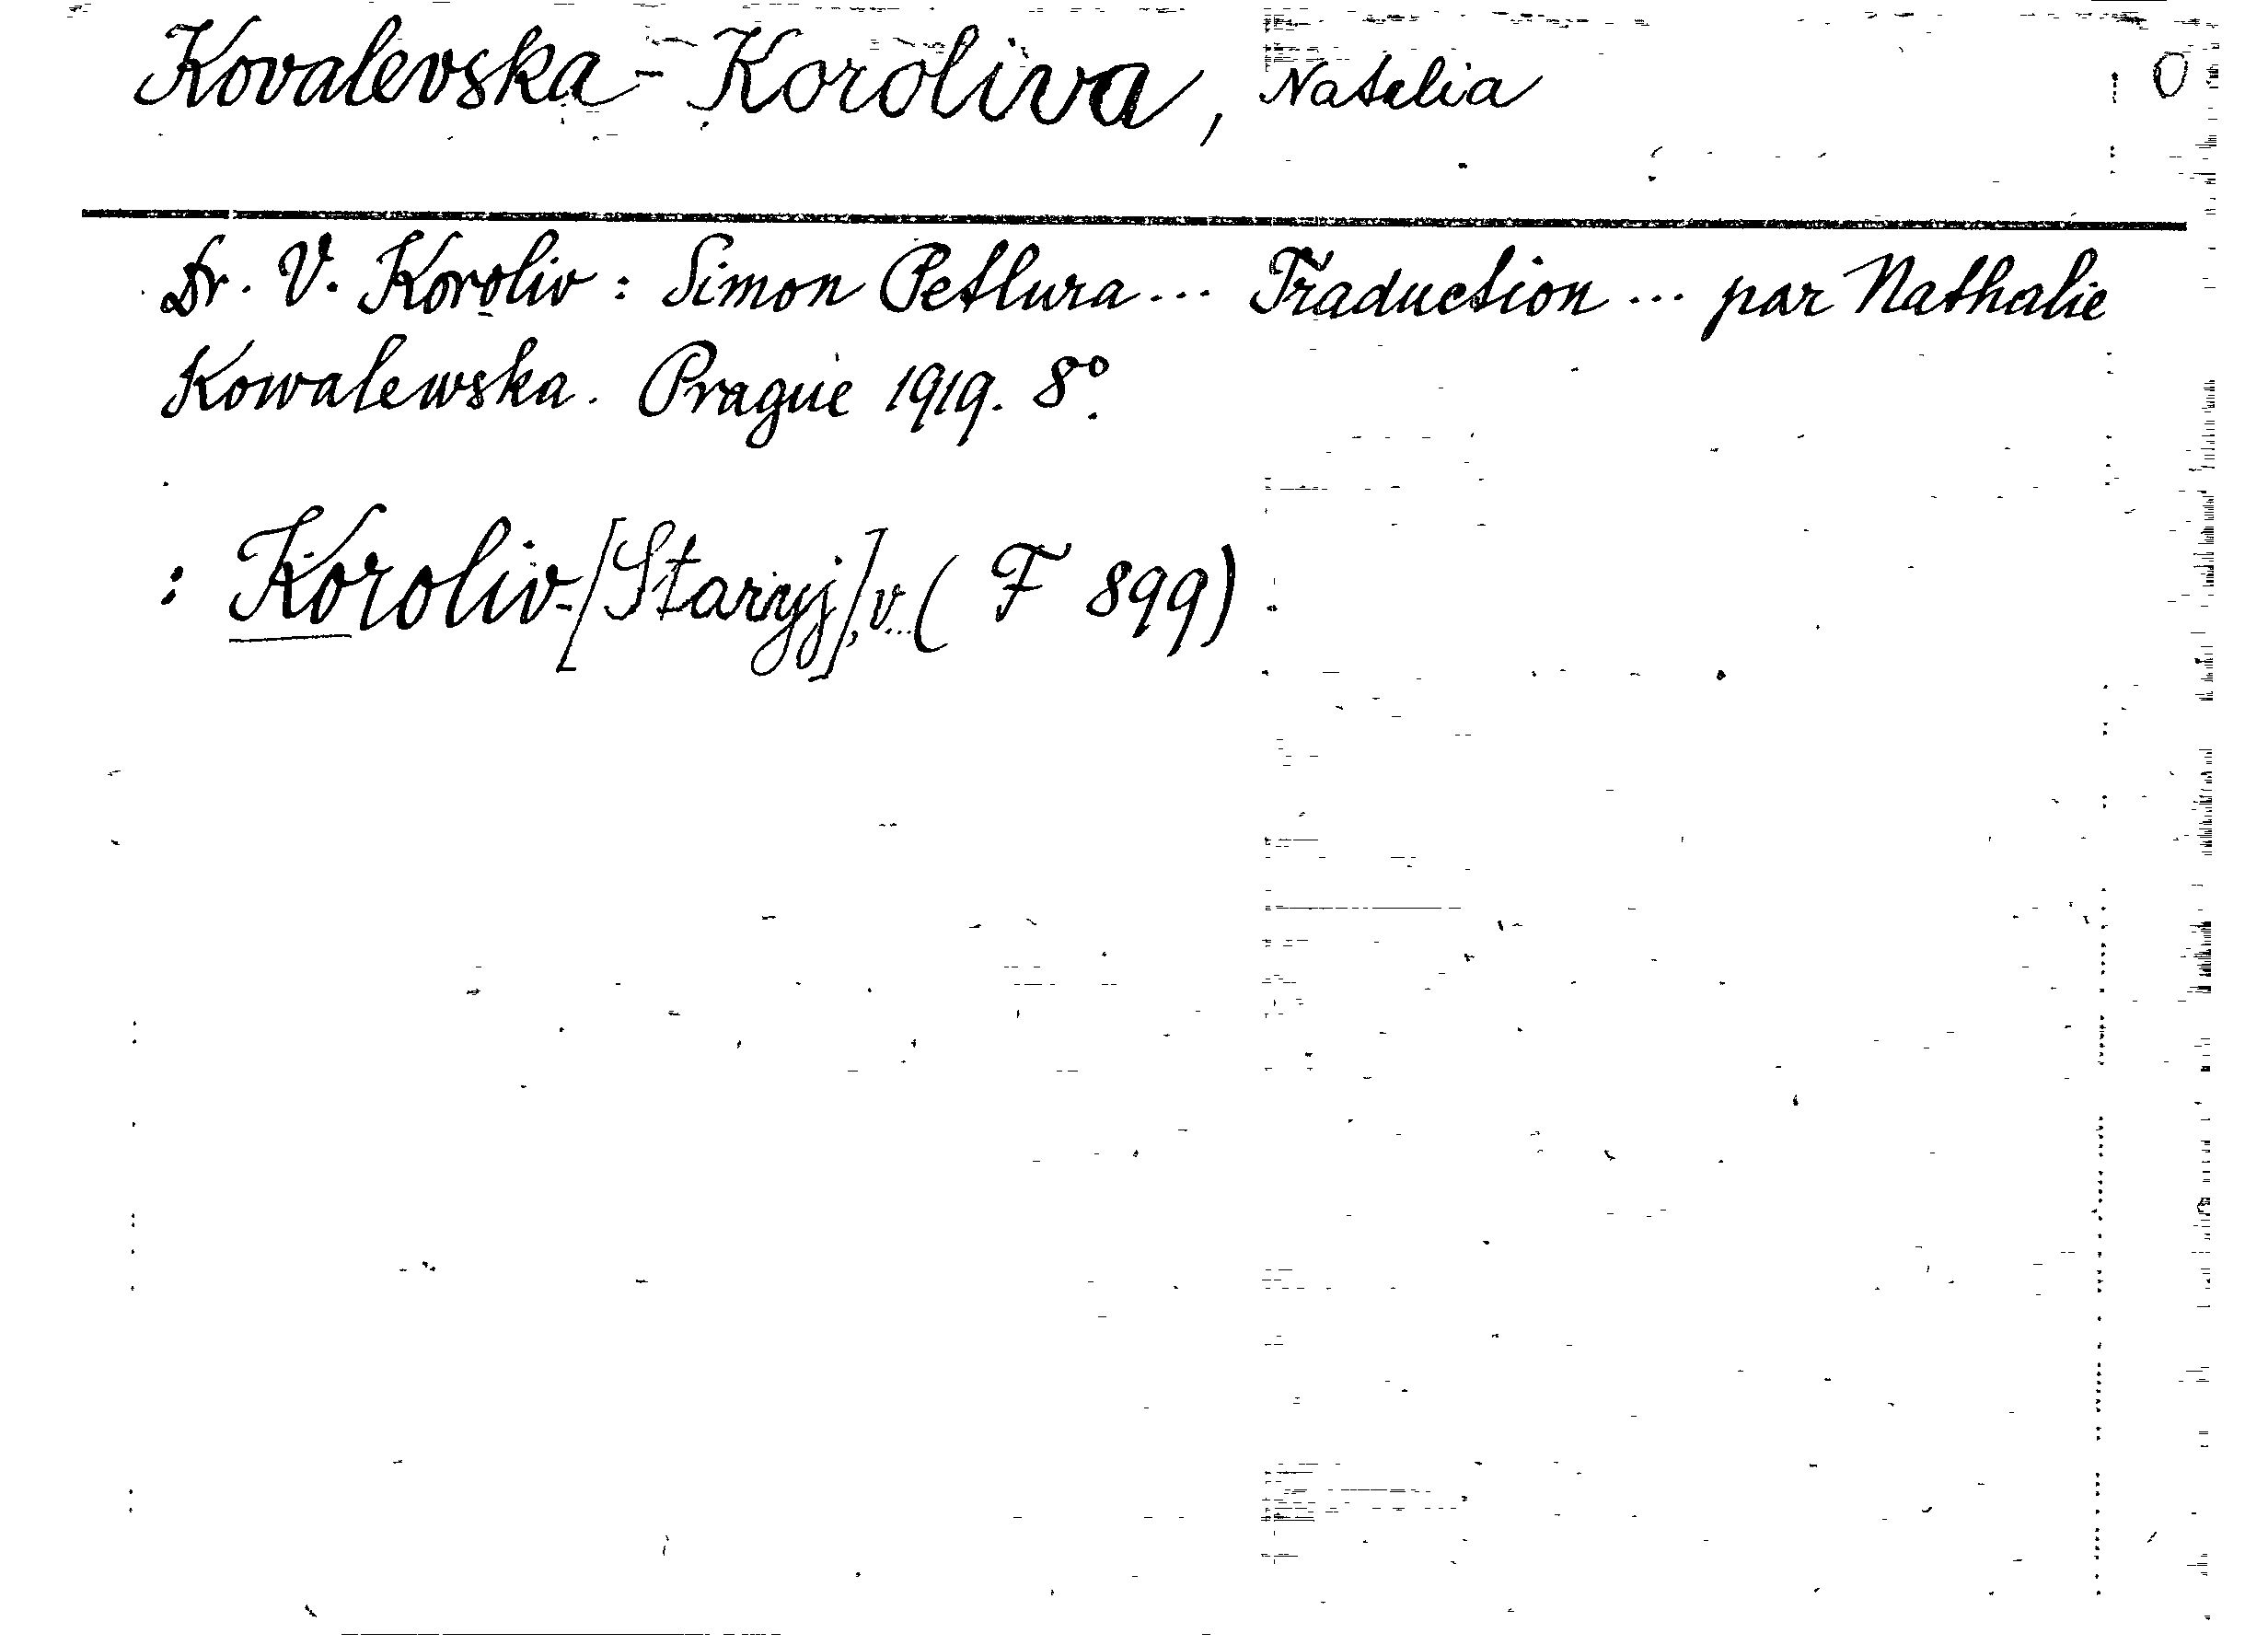 Kovalevska-Koroliva, Natalia O
Dr. V. Koroliv: Simon Petlura... Traduction... par Nathalie
Kowalewska. Prague 1919. 8°.
: Koroliv-[Staryj], V... (F 899)